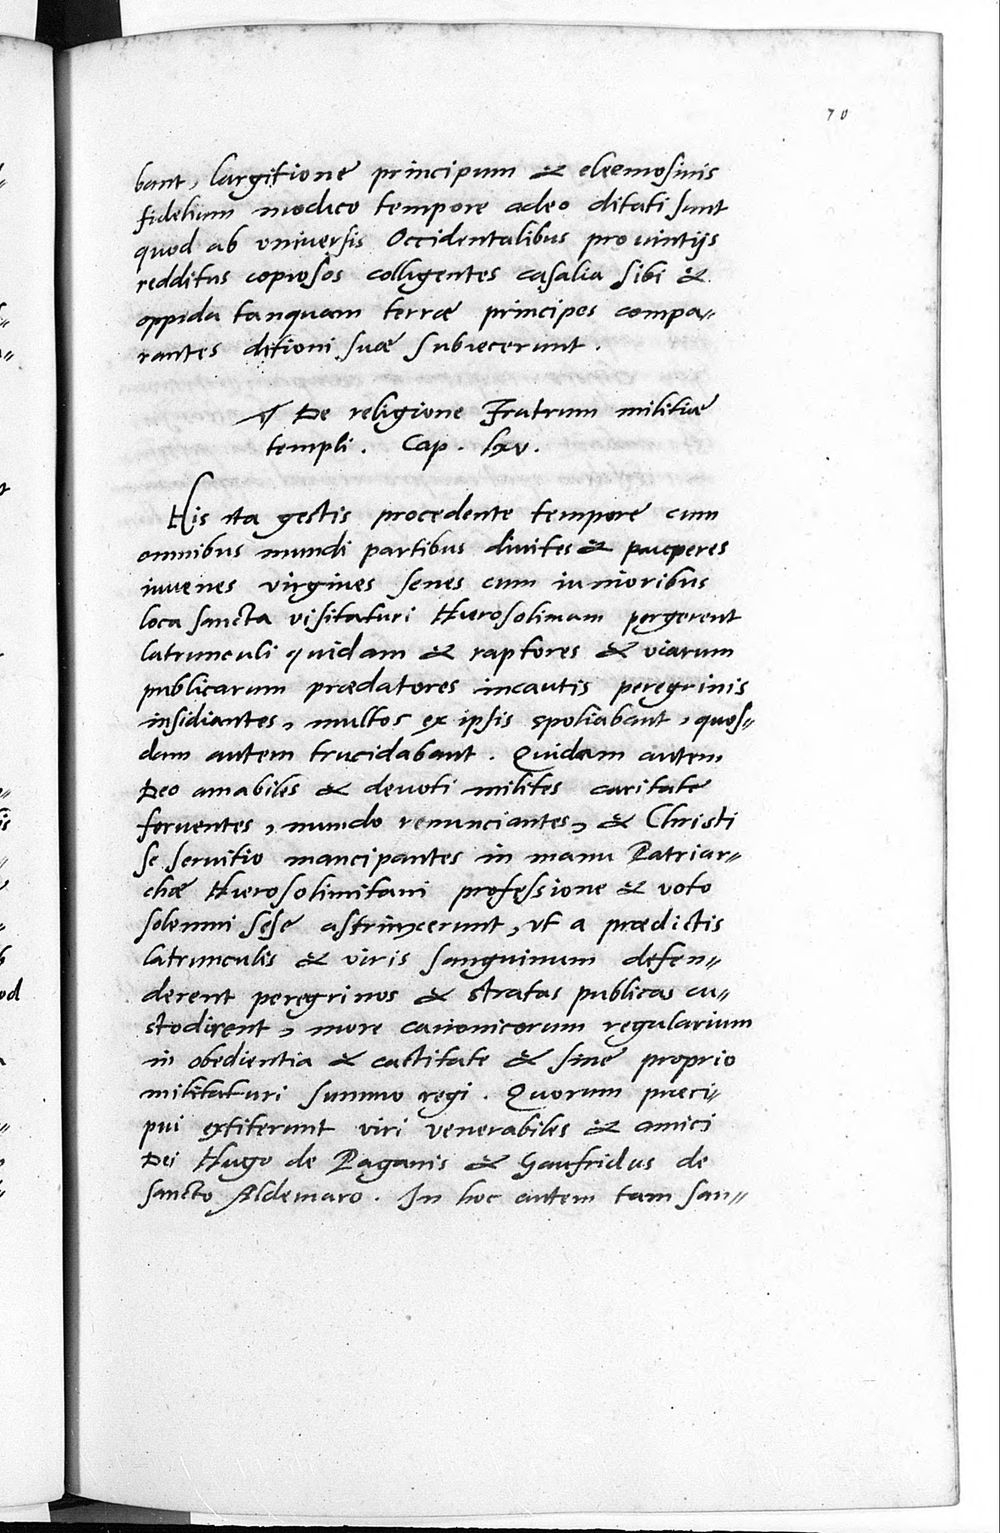 70
bant, largitione principum & eleemosinis
fidelium modico tempore adeo ditati sunt
quod ab vniuersis Occidentalibus prouintijs
redditus copiosos colligentes casalia sibi &
oppida tanquam terræ principes compa〃
rantes ditioni suæ subiecerunt.
¶ De religione Fratrum militiæ
templi. Cap. lxv.
His ita gestis procedente tempore cum
omnibus mundi partibus diuites & pauperes
iuuenes virgines senes cum iunioribus
loca sancta visitaturi Hierosolimam pergerent
latrunculi quidam & raptores & viarum
publicarum prædatores incautis peregrinis
insidiantes, multos ex ipsis spoliabant, quos〃
dam autem trucidabant. Quidam autem
Deo amabiles & deuoti milites caritate
feruentes, mundo renunciantes, & Christi
se seruitio mancipantes in manu Patriar〃
chæ Hierosolimitani professione & voto
solemni sese astrinxerunt, vt a prædictis
latrunculis & viris sanguinum defen〃
derent peregrinos & stratas publicas cu〃
stodirent, more canonicorum regularium
in obedientia & castitate & sine proprio
militaturi summo regi. Quorum præci〃
pui extiterunt viri venerabiles & amici
Dei Hugo de Paganis & Gaufridus de
sancto Aldemaro. In hoc autem tam san〃